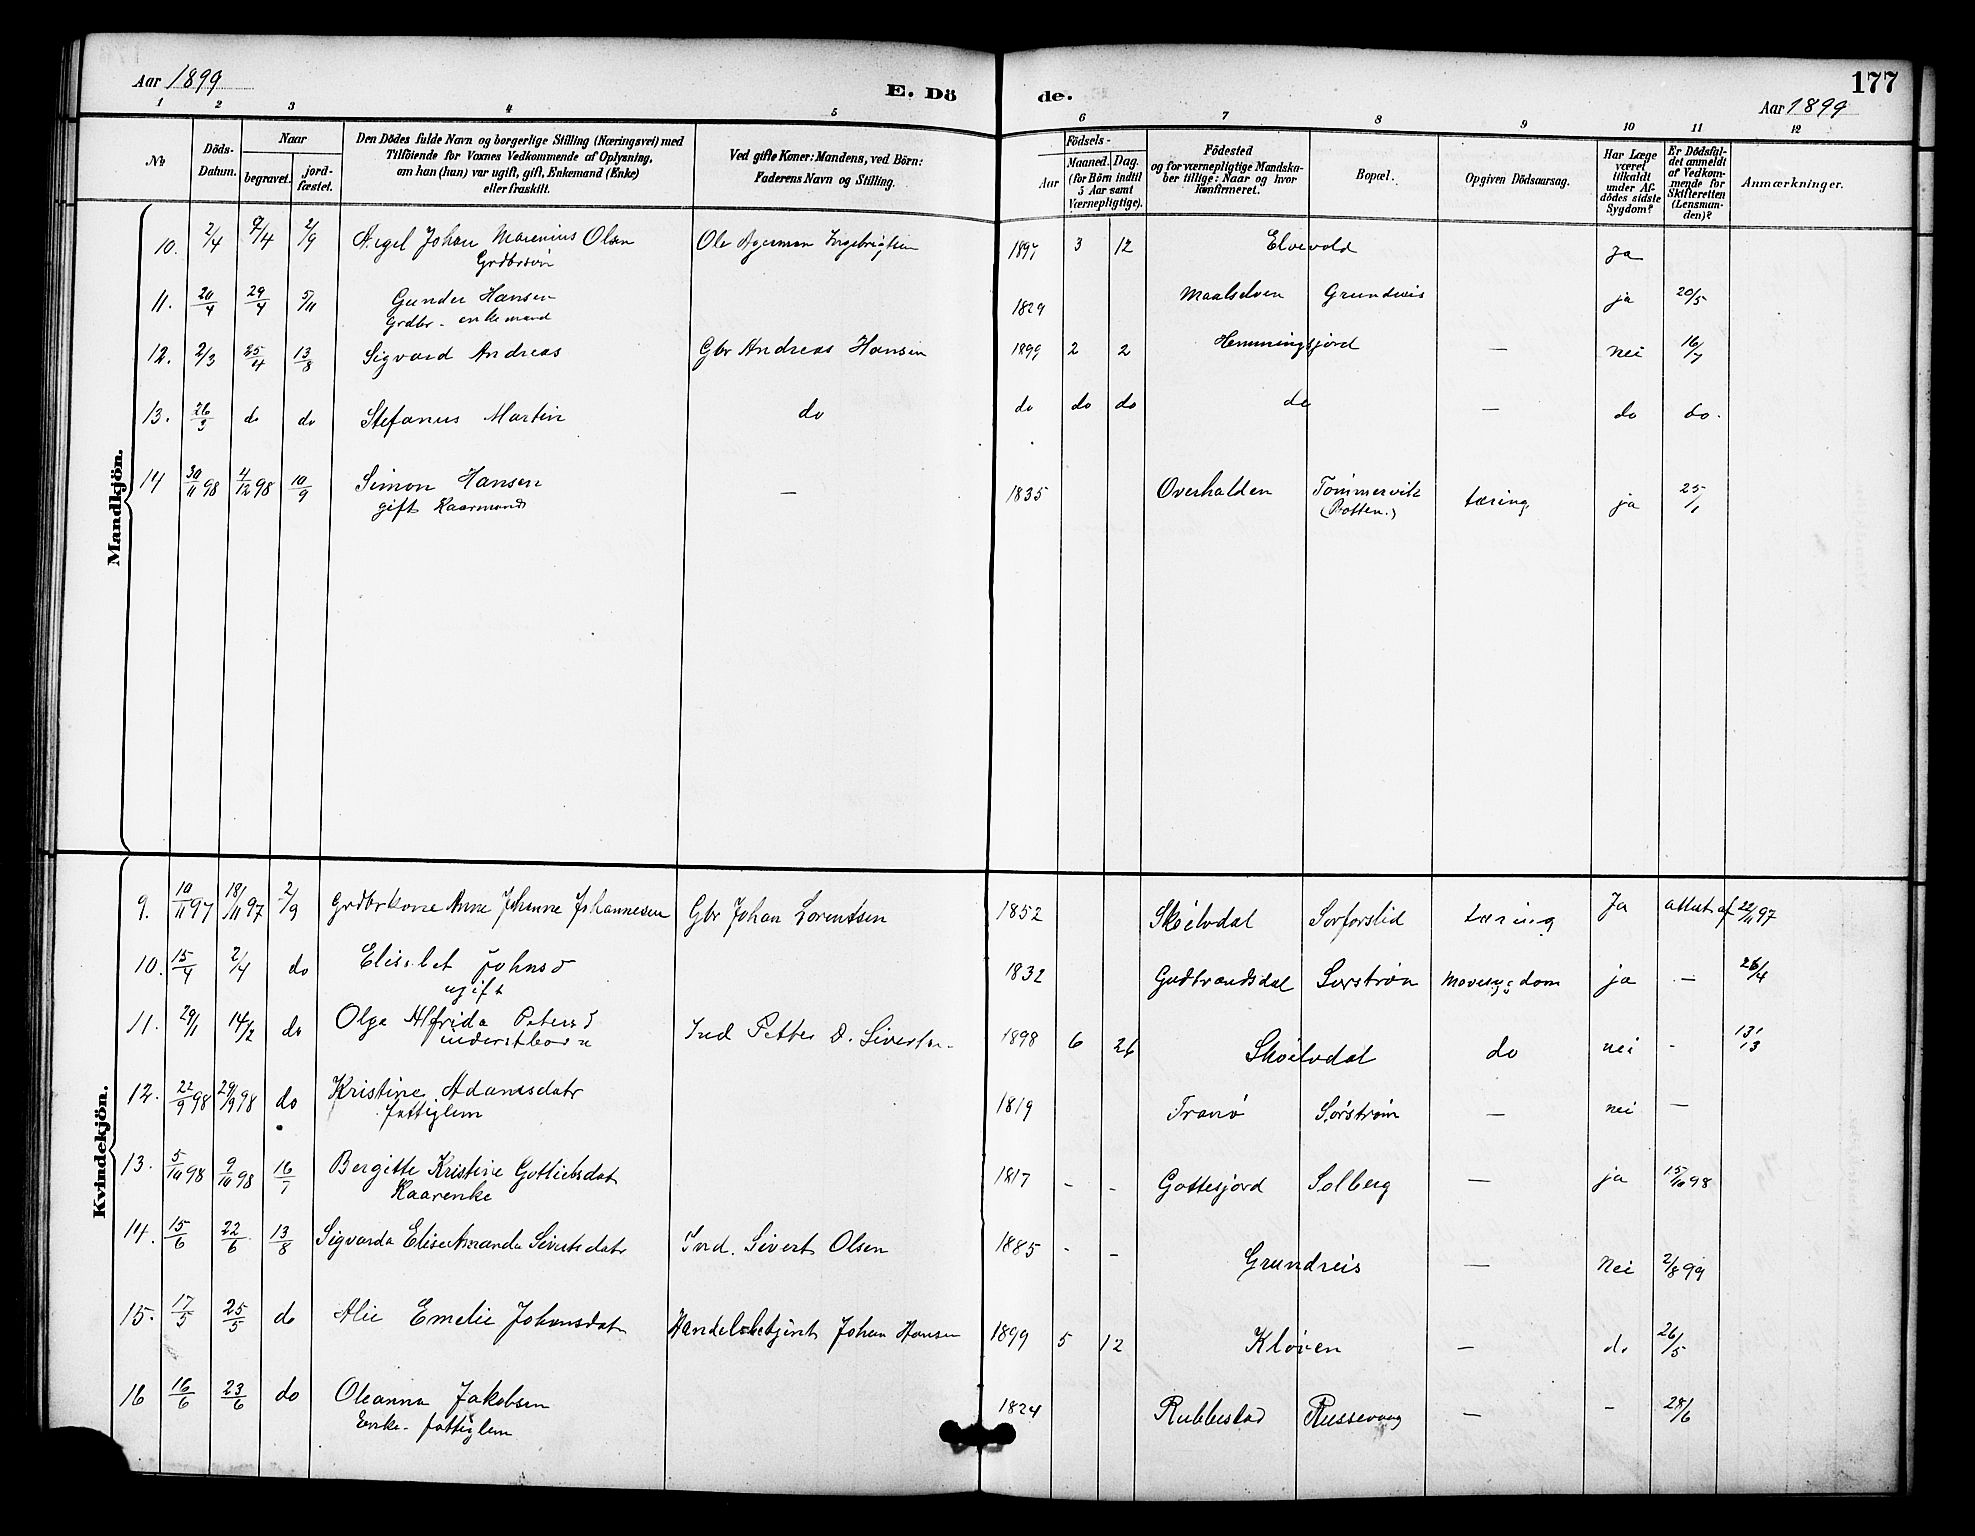 Aar 1899
E. Dö
de.
177
Aar 1899
1 2 3 4 5 6 7 8 9 10 11 12
No
Döds-Datum.
Naar
begravet.
jord-fæstet.
Den Dödes fulde Navn og borgerlige Stilling (Næringsvei) med
Tilföiende for Voxnes Vedkommende af Oplysning,
om han (hun) var ugift, gift, Enkemand (Enke)
eller fraskilt.
Ved gifte Koner: Mandens, ved Börn:
Faderens Navn og Stilling.
Födsels-
Aar
Maaned. Dag.
(for Börn indtil
5 Aar samt
Værnepligtige).
Födested
og for værnepligtige Mandska-
ber tillige: Naar og hvor
konfirmeret.
Bopæl.
Opgiven Dödsaarsag.
Har Læge
været
tilkaldt
under Af-
dödes sidste
Sygdom?
Er Dödsfal-
det anmeldt
af Vedkom-
mende for
Skifteretten
(Lensman-
den)?
Anmærkninger.
Mandkjön.
10. 2/4 7/4 2/9 Johan Marenius Olsen Ole 1897 3 12 Elvevold Ja
Grdbrsön
11. 20/4 29/4 5/11 Gunder Hansen 1829 Maalselven Grundreis ja 20/5
Grdbr. enkemand
12. 2/3 25/4 13/8 Sigvard Andreas Gbr Andreas Hansen 1899 2 2 Hemmingsjord — nei 16/7
13. 26/3 do do Stefanus Martin do do do do do — do do.
14 30/11 98 4/12 98 10/9 Simon Hansen — 1835 Overhalden Tømmervik tæring ja 25/1
gift Kaarmand (Rotten.)
Kvindekjön.
9. 10/11 97 18/11 97 2/9 Grdbrkone Anne Johanne Johannesen Gbr Johan Lorentsen 1852 Skøelvdal Sorforslid tæring Ja attest af 22/11 97
10. 15/4 2/4 do Elisabet Johnsd 1832 Gudbrandsdal Sørstrøn Mavesygdom ja — 26/4
ugift
11. 29/1 14/2 do Olga Alfrida Petersd Ind Petter D. Sivertsen 1898 6 26 Skøelvdal do nei - 13/3
inderstbarn
12. 22/9 98 29/9 98 do Kristine Adamsdatr 1819 Tranø Sørstrøn — nei —
fattiglem
13. 5/10 98 9/10 98 16/7 Bergitte Kristine Gottliebsdat 1817 - - Gottesjord Solberg — ja 15/10 98
Kaarenke
14. 15/6 22/6 13/8 Sigvarda Elise Amanda Sivertsdatr Ind. Sivert Olsen 1885 - - Grundreis — Nei 2/8 99
15. 17/5 25/5 do Alie Emelie Johansdat Handelsbetjent Johan Hansen 1899 5 12 Kløven — do 26/5
16 16/6 23/6 do Oleanna Jakobsen 1824 Rubbestad Russevaag — - 28/6
Enke. fattiglem